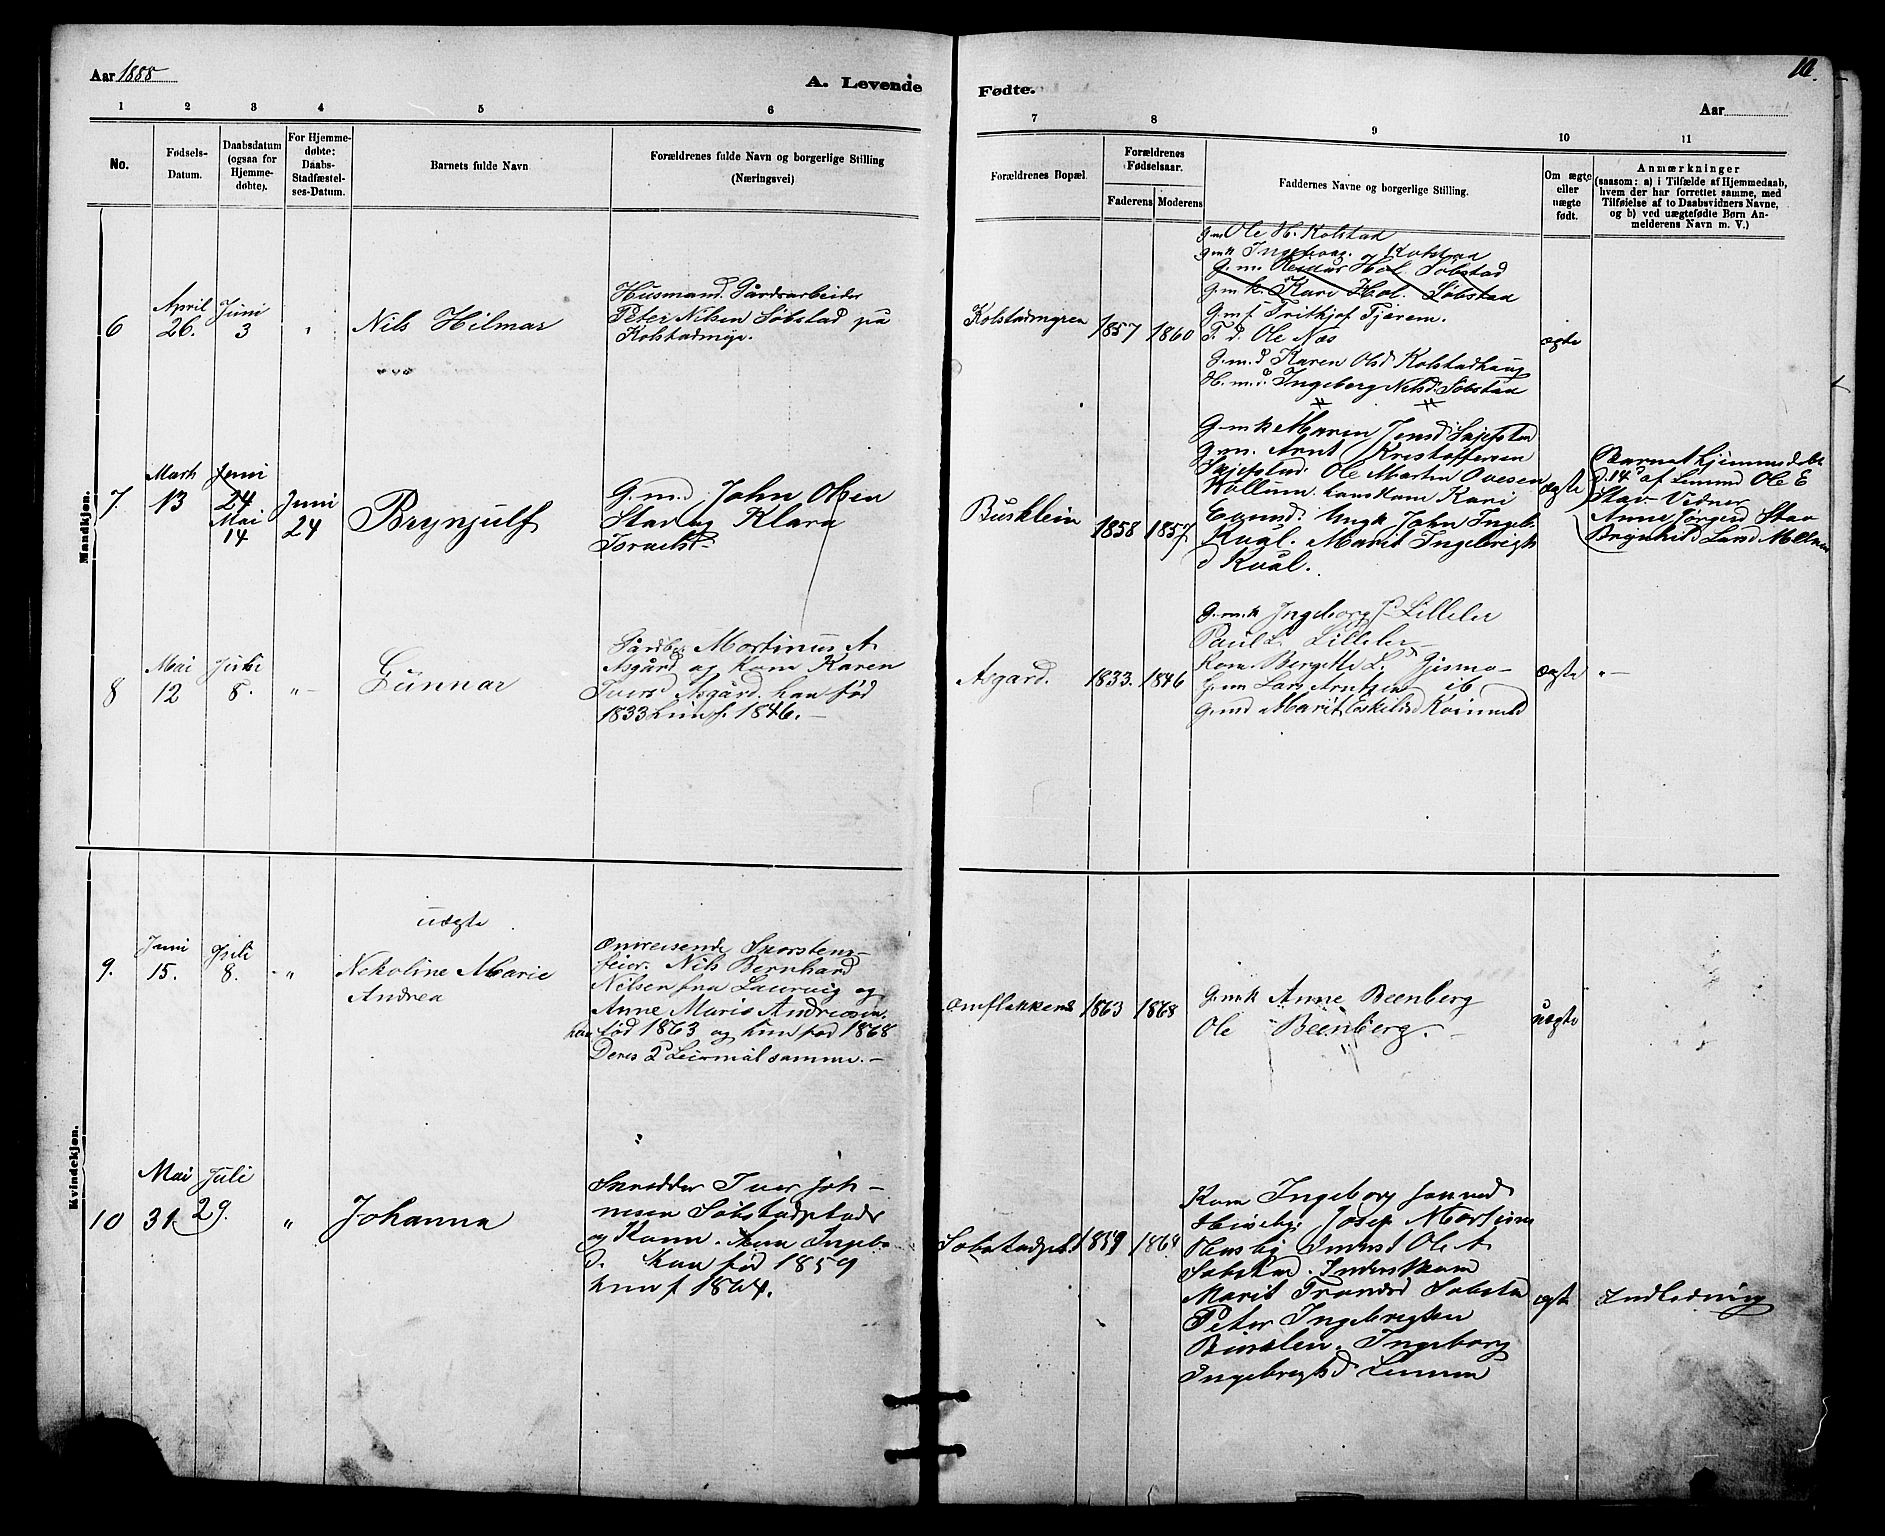 Aar 1888
A. Levende
Fødte.
Aar
1 2 3 4 5 6
7 8 9 10 11
No.
Fødsels-
Datum.
Daabsdatum
(ogsaa for
Hjemme-
døbte).
For Hjemme-
døbte:
Daabs-
Stadfæstel-
ses-Datum.
Barnets fulde Navn
Forældrenes fulde Navn og borgerlige Stilling
(Næringsvei)
Forældrenes Bopæl.
Forældrenes
Fødselsaar.
Faderens
Moderens
Faddernes Navne og borgerlige Stilling.
Om ægte
eller
uægte
født.
Anmærkninger
(saasom: a) i Tilfælde af Hjemmedaab,
hvem der har forrettet samme, med
Tilføielse af to Daabsvidners Navne,
og b) ved uægtefødte Børn An-
melderens Navn m. V.)
Mandkjøn.
6
April
26.
Juni
3
Nils Hilmar
Husmand. Gårdsarbeider
Peter Nilsen Søbstad på
Kolstadmyr.
Kolstadmyren
1857
1860
g.m Ole H. Kolstad
gmk Ingeborg Kolstad
G.m. Hol. Søbstad
g.m.k. Kari Hol. Søbstad
G.m.f. Fritkjof Tjærem.
F. d. Ole Næs
G.m.d Karen Olsd Kolstadhaug
H.m.d. Ingeborg Nilsd. Søbstad
ægte
7.
Marts
13
Juni
24
Mai
14
Juni
24
Brynjulf
G.m.d John Olsen
Stav og Klara
Israelsd.
Busklein
1858
1857
G.mk Maren Jensd Skjefstad
g.m. Arnt Kristoffersen
Skjefstad. Ole Martin Ovesen
Vollum. hans Kone Kari
Ungk John Ingeb.
Kvål. Marit Ingebrigts
d Kvål.
ægte
Barnet hjemmedøbt
d. 14 af Lensmd Ole E
Stav. Vidner
Anne Jørgensd Stav
Brynhild Larsd
8
Mai
12
Juli
8.
"-
Gunnar
Gårdbr. Martinus A.
Asgård og Kone Karen
Iversd Asgård. han fød
1833 hun f. 1846.-
Asgard.
1833.
1846
G.m.k Ingeborg P Lilleler
Paul L. Lilleler
Kone Bergitte L. Gjsmo-
G.m Lars Arntzen ib.
G.md Marit Eskilsd
ægte
"-
Kvindekjøn.
9.
Juni
15.
Juli
8.
-"
uægte
Nekoline Marie
Andrea
Omreisende Skorstens-
feier. Nils Bernhard
Nilsen fra Laurvig og
Anne Marie Andreasen.
han fød 1863 og hun fød 1868
Deres 2d Leiermål samme.-
omflakkend
1863
1868
G.mk Anne Beenberg
Ole Beenberg.-
uægte
10
Mai
31.
Juli
29.
"
Johanna
Skredder Iver Joh-
nesen Søbstadplads
og Kone. Ingeb.
d. han fød 1859
hun f 1864.
Søbstadpl.
1859
1864
Kone Ingeborg
Josep Mortinus
Husby Inderst Ole A.
Søbstad. Inderstkone
Marit Trondsd Søbstad
Peter Ingebrigtsen
Busklen. Ingeborg
Ingebrigtsd
ægte
Indledning